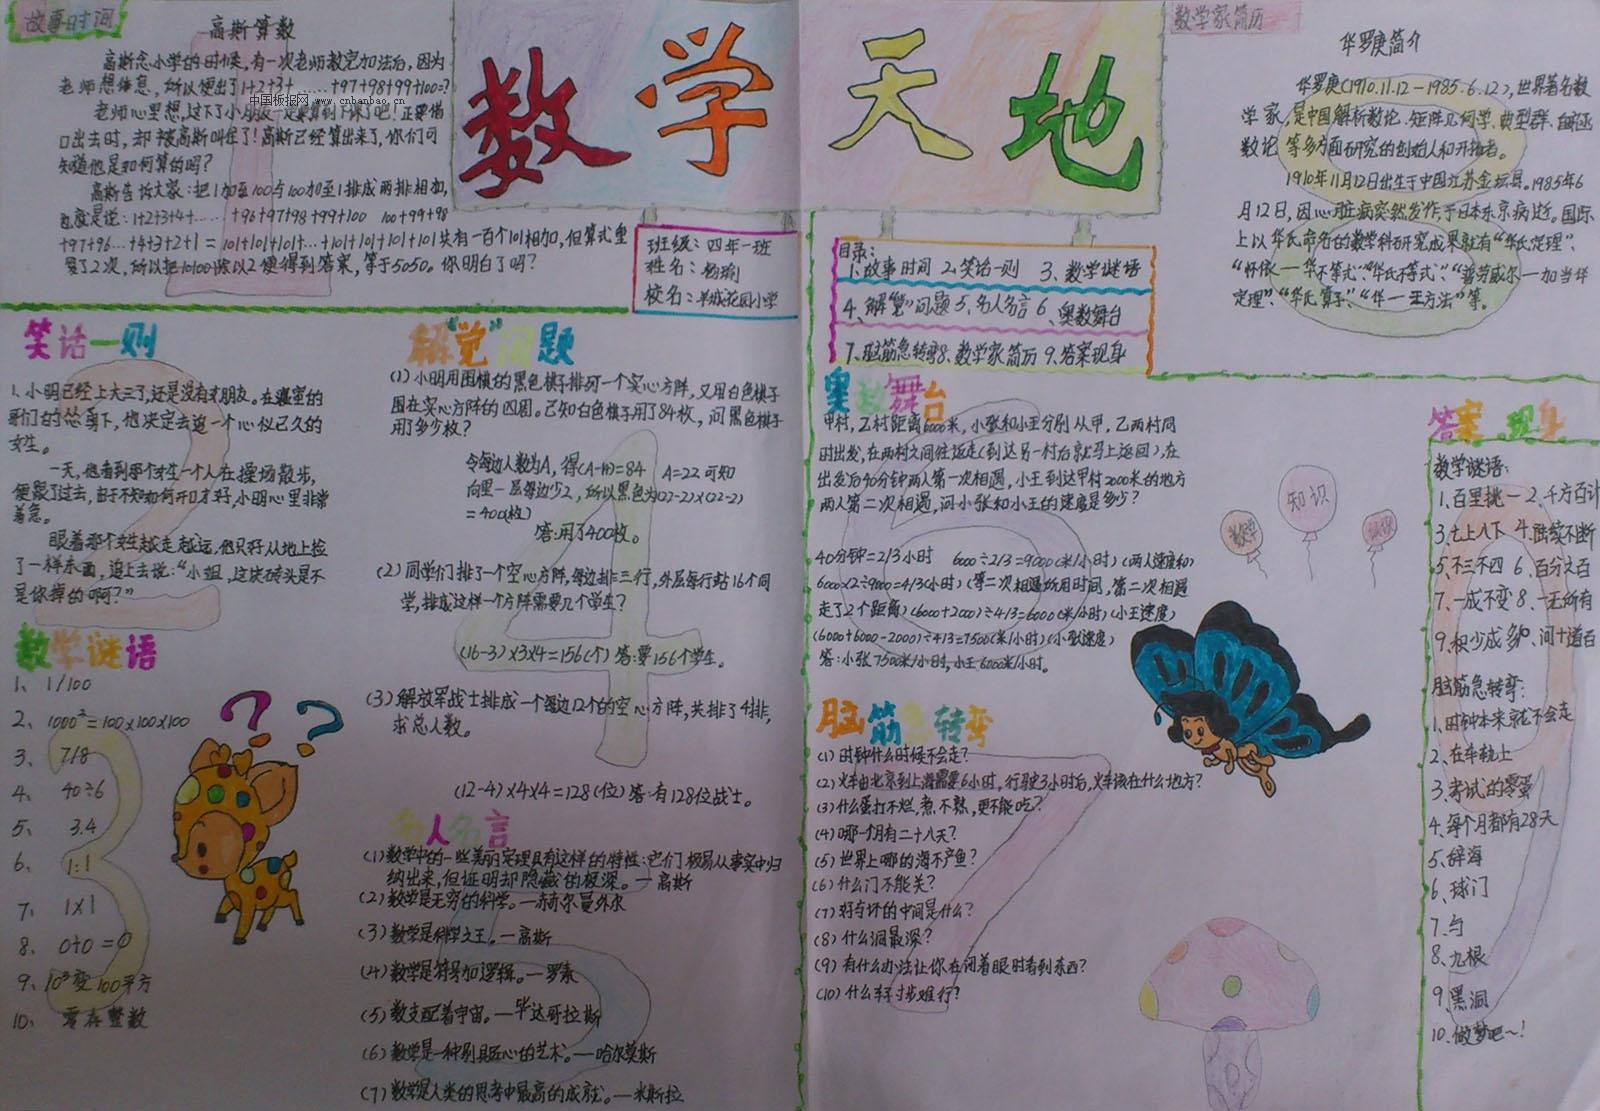 故事时间
高斯算数
高斯念小学的时候,有一次老师教完加法后,因为
老师想休息,所以便出了1+2+3+......+97+98+99+100=?
中国板报网 www.cnbanbao.cn
老师心里想,这下小朋友一定要算到下课了吧!正要借
口出去时,却被高斯叫住了!高斯已经算出来了,你们可
知道他是如何算的吗?
高斯告诉大家:把1加至100与100加至1排成两排相加,
也就是说:1+2+3+4+......+96+97+98+99+100 100+99+98
+97+96...+4+3+2+1=101+101+101+...+101+101+101+101共有一百个101相加,但算式重
复了2次,所以把10100除以2便得到答案,等于5050。你明白了吗?
数学天地
班级:四年一班
姓名:
校名:羊城花园小学
目录:
1、故事时间 2、笑话一则 3、数学谜语
4、解“觉”问题 5、名人名言 6、奥数舞台
7、脑筋急转弯8、数学家简历 9、答案现身
数学家简历
华罗庚简介
华罗庚(1910.11.12-1985.6.12),世界著名数
学家,是中国解析数论、矩阵几何学、典型群、自守函
数论等多方面研究的创始人和开拓者。
1910年11月12日出生于中国江苏金坛县。1985年6
月12日,因心脏病突然发作,于日本东京病逝。国际
上以华氏命名的数学科研究成果就有“华氏定理”、
“怀依—华不等式”、“华氏不等式”、“普劳威尔—加当华
定理”、“华氏算子”、“华—王方法”等。
笑话一则
1、小明已经上大三了,还是没有女朋友。在寝室的
哥们的怂恿下,他决定去追一个心仪已久的
女生。
一天,他看到那个女生一个人在操场散步,
便跟了过去,由于不知如何开口才好,小明心里非常
着急。
眼着那个女生越走越远,他只好从地上捡
了一样东西,追上去说:“小姐,这块砖头是不
是你掉的啊?”
数学谜语
1、 1/100
2、1000²=100×100×100
3、 7/8
4、 40÷6
5、 3.4
6、 1:1
7、 1×1
8、 0+0=0
9、10³变100平方
10、 零存整数
解“觉”问题
(1)小明用围棋的黑色棋子排列一个实心方阵,又用白色棋子
围在实心方阵的四周。已知白色棋子用了84枚,问黑色棋子
用了多少枚?
令每边人数为A,得(A-1)×4=84 A=22 可知
向里一层每边少2,所以黑色为(22-2)×(22-2)
=400(枚)
答:用了400枚。
(2)同学们排了一个空心方阵,每边排三行,外层每行站16个同
学,排成这样一个方阵需要几个学生?
(16-3)×3×4=156(个) 答:要156个学生。
(3)解放军战士排成一个每边12个的空心方阵,共排了4排,
求总人数。
(12-4)×4×4=128(位) 答:有128位战士。
名人名言
(1)数学中的一些美丽定理具有这样的特性:它们极易从事实中归
纳出来,但证明却隐藏的极深。—高斯
(2)数学是无穷的科学。—赫尔曼外尔
(3)数学是科学之王。—高斯
(4)数学是符号加逻辑。—罗素
(5)数支配着宇宙。—毕达哥拉斯
(6)数学是一种别具匠心的艺术。—哈尔莫斯
(7)数学是人类的思考中最高的成就。—米斯拉
奥数舞台
甲村,乙村距离6000米,小张和小王分别从甲,乙两村同
时出发,在两村之间往返走(到达另一村后就马上返回),在
出发后40分钟两人第一次相遇,小王到达甲村2000米的地方
两人第二次相遇,问小张和小王的速度是多少?
40分钟=2/3小时 6000÷2/3=9000(米/小时)(两人速度和)
6000×2÷9000=4/3(小时)(第二次相遇所用时间,第二次相遇
走了2个距离)(6000+2000)÷4/3=6000(米/小时)(小王速度)
(6000+6000-2000)÷4/3=7500(米/小时)(小张速度)
答:小张7500米/小时,小王6000米/小时。
脑筋急转弯
(1)时钟什么时候不会走?
(2)火车由北京到上海需要6小时,行驶3小时后,火车该在什么地方?
(3)什么蛋打不烂,煮不熟,更不能吃?
(4)哪一个月有二十八天?
(5)世界上哪的海不产鱼?
(6)什么门不能关?
(7)好与坏的中间是什么?
(8)什么洞最深?
(9)有什么办法让你在闭着眼时看到东西?
(10)什么车寸步难行?
数学
知识
答案现身
数学谜语:
1、百里挑一 2、千方百计
3、七上八下 4、陆续不断
5、不三不四 6、百分之百
7、一成不变 8、一无所有
9、积少成多 10、问十道百
脑筋急转弯:
1、时钟本来就不会走
2、在车轨上
3、考试的零蛋
4、每个月都有28天
5、辞海
6、球门
7、与
8、九根
9、黑洞
10、做梦吧~!